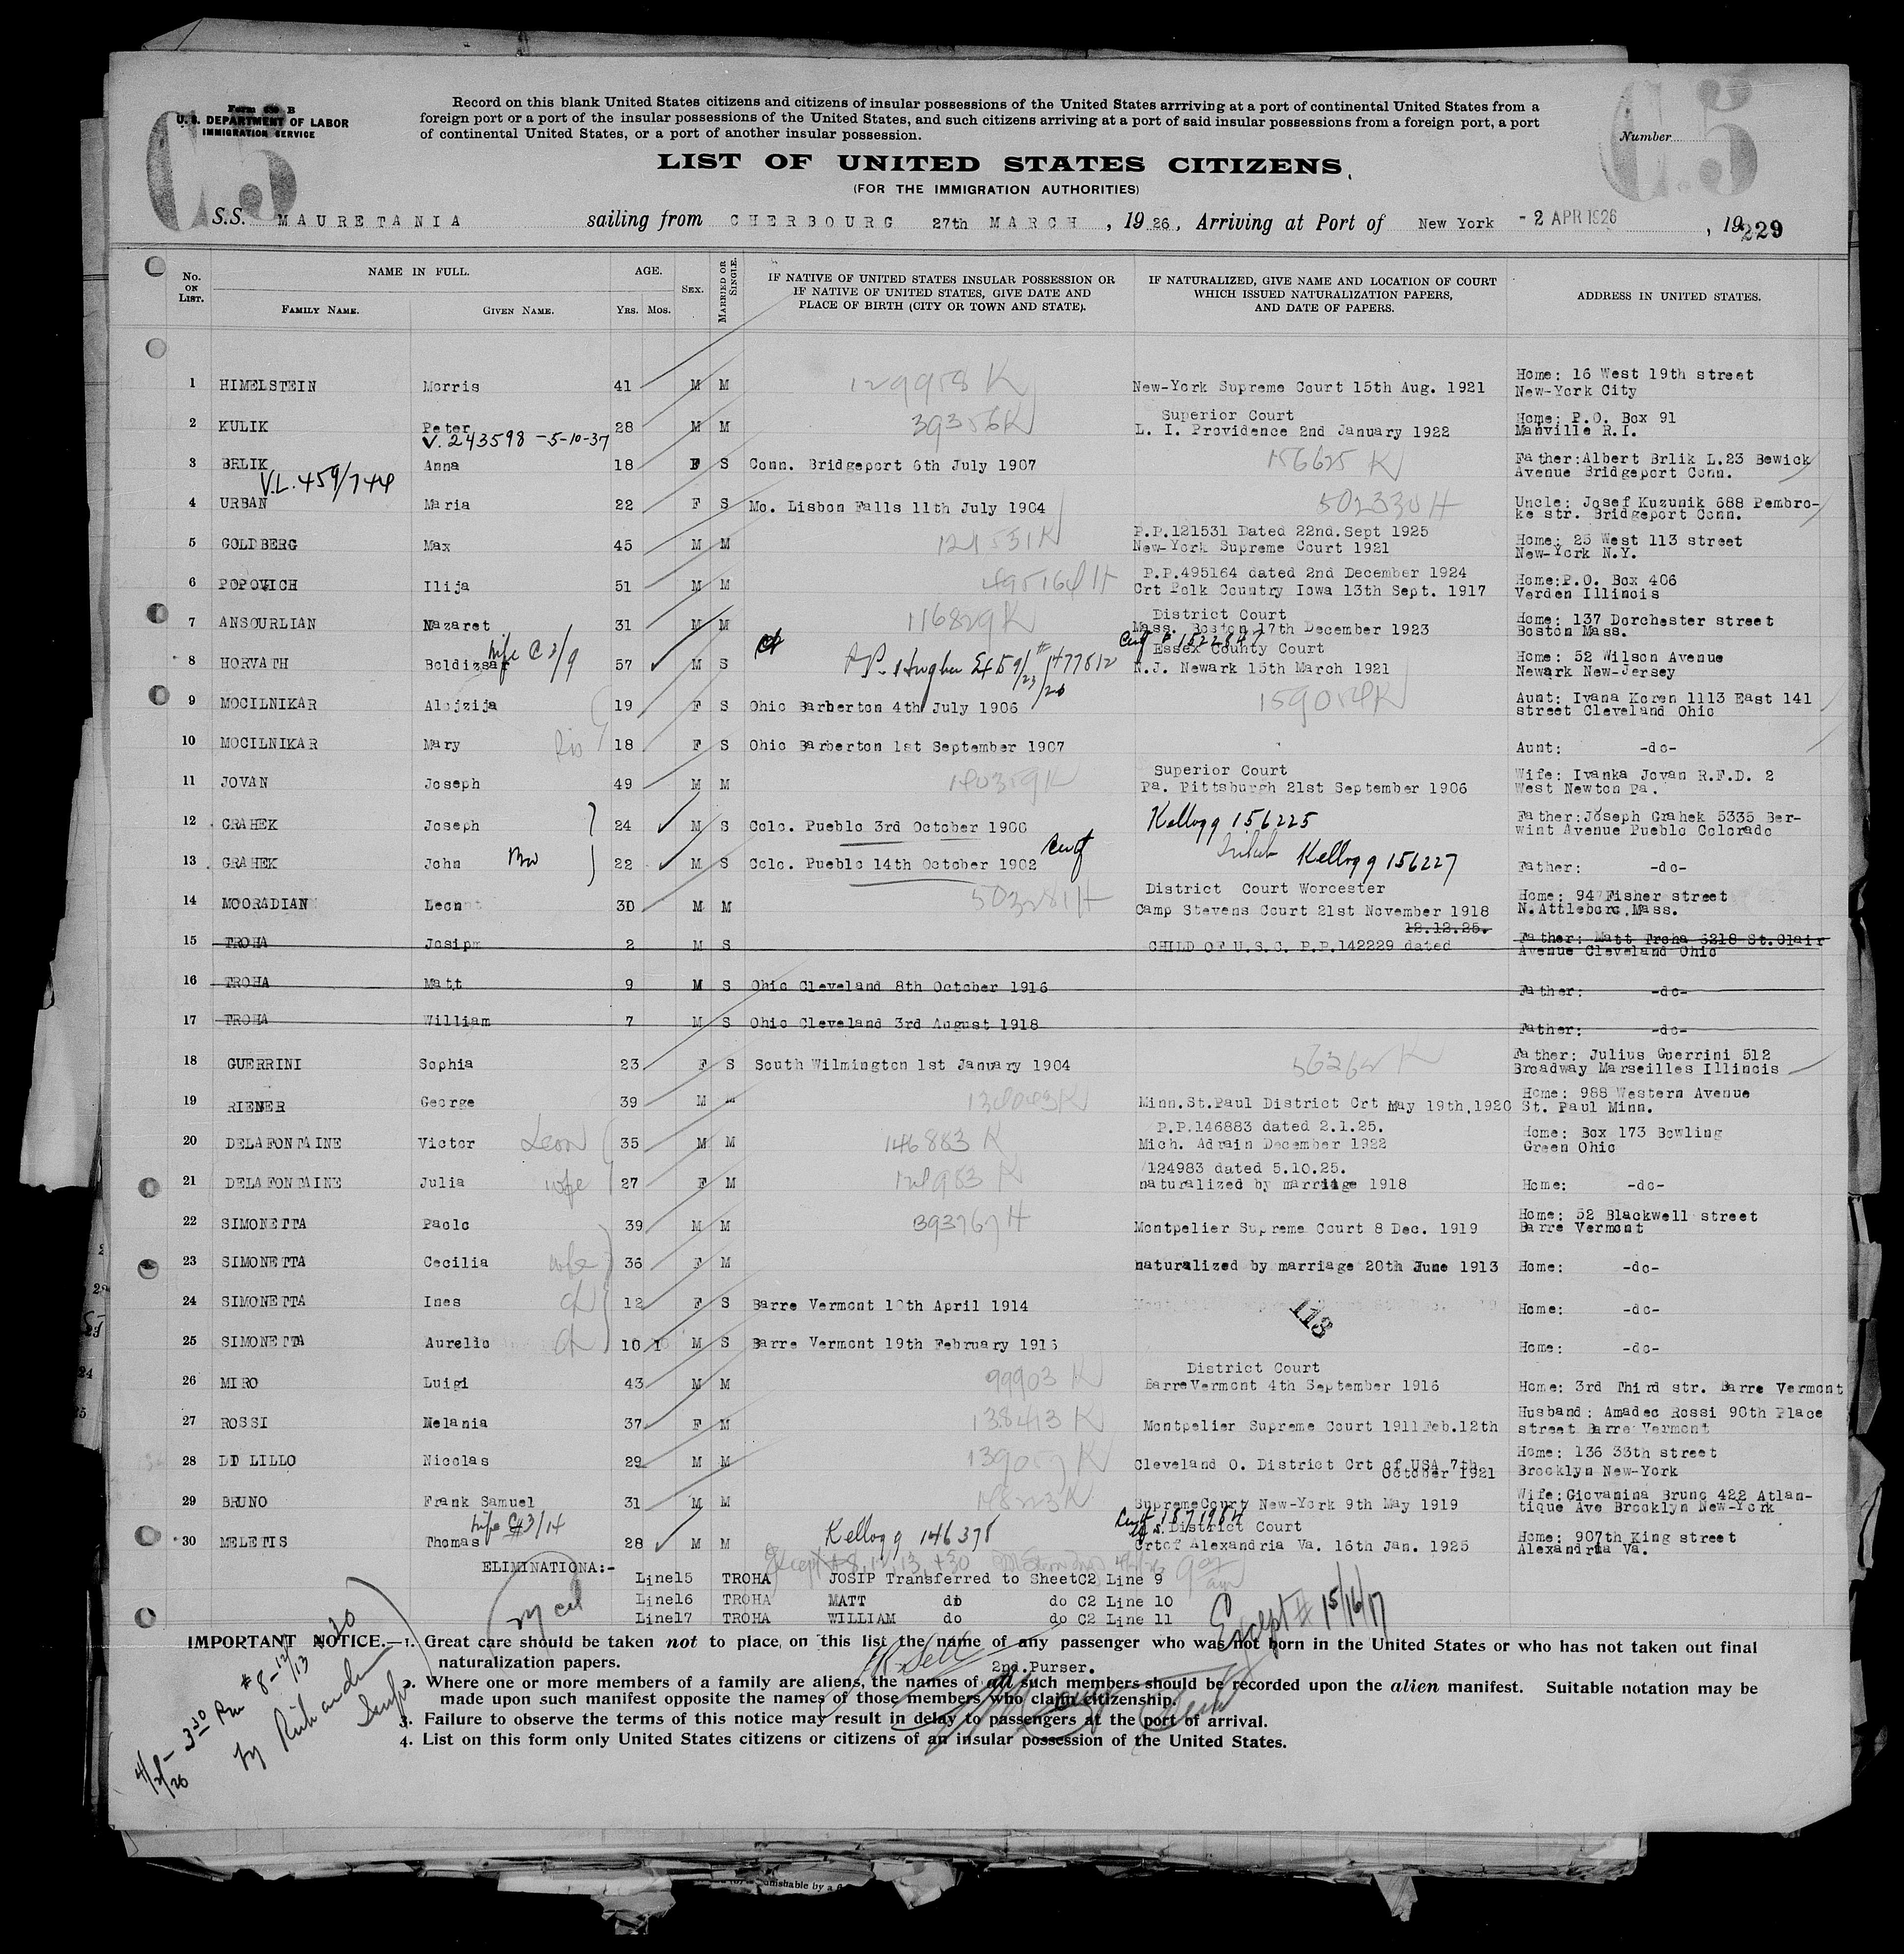 Form 630 B
U.S. DEPARTMENT OF LABOR
IMMIGRATION SERVICE
C5
Record on this blank United States citizens and citizens of insular possessions of the United States arrriving at a port of continental United States from a
foreign port or a port of the insular possessions of the United States, and such citizens arriving at a port of said insular possessions from a foreign port, a port
of continental United States, or a port of another insular possession.
Number
C.5
LIST OF UNITED STATES CITIZENS
(FOR THE IMMIGRATION AUTHORITIES)
S.S. MAURETANIA sailing from CHERBOURG 27th MARCH, 1926, Arriving at Port of New York - 2 APR 1926, 19 229
No. ON LIST. NAME IN FULL. FAMILY NAME. GIVEN NAME. AGE. YRS. MOS. SEX. MARRIED OR SINGLE. IF NATIVE OF UNITED STATES INSULAR POSSESSION OR IF NATIVE OF UNITED STATES, GIVE DATE AND PLACE OF BIRTH (CITY OR TOWN AND STATE). IF NATURALIZED, GIVE NAME AND LOCATION OF COURT WHICH ISSUED NATURALIZATION PAPERS, AND DATE OF PAPERS. ADDRESS IN UNITED STATES.
1 HIMELSTEIN Morris 41 M M 129958 K New-York Supreme Court 15th Aug. 1921 Home: 16 West 19th street
New-York City
2 KULIK Peter 28 M M 39356K Superior Court
L. I. Providence 2nd January 1922 Home: P.O. Box 91
Manville R.I.
V. 243598 - 5-10-37
3 BRLIK Anna 18 F S Conn. Bridgeport 6th July 1907 156625 K Father:Albert Brlik L.23 Bewick
Avenue Bridgeport Conn.
V.L. 459/744
4 URBAN Maria 22 F S Mo. Lisbon Falls 11th July 1904 502330H Uncle: Josef Kuzunik 688 Pembro-
ke str. Bridgeport Conn.
5 GOLDBERG Max 45 M M 121531K P.P.121531 Dated 22nd.Sept 1925
New-York Supreme Court 1921 Home: 25 West 113 street
New-York N.Y.
6 POPOVICH Ilija 51 M M 495164 H P.P.495164 dated 2nd December 1924
Crt Polk Country Iowa 13th Sept. 1917 Home:P.O. Box 406
Verden Illinois
7 ANSOURLIAN Nazaret 31 M M 116829K District Court
Mass. Boston 17th December 1923 Home: 137 Dorchester street
Boston Mass.
8 HORVATH Boldizsar wife C 2/9 57 M S # 1477812 Cert # 1522847
Essex County Court
N.J. Newark 15th March 1921 Home: 52 Wilson Avenue
Newark New-Jersey
9 MOCILNIKAR Alojzija 19 F S Ohio Barberton 4th July 1906 159054K Aunt: Ivana Koren 1113 East 141
street Cleveland Ohio
10 MOCILNIKAR Mary 18 F S Ohio Barberton 1st September 1907 Aunt: -do-
11 JOVAN Joseph 49 M M 140359K Superior Court
Pa. Pittsburgh 21st September 1906 Wife: Ivanka Jovan R.F.D. 2
West Newton Pa.
12 GRAHEK Joseph 24 M S Colo. Pueblo 3rd October 1900 Kellogg 156225 Father:Joseph Grahek 5335 Ber-
wint Avenue Pueblo Colorado
13 GRAHEK John Bro 22 M S Colo. Pueblo 14th October 1902 Cert Kellogg 156227 Father: -do-
14 MOORADIAN Leon 30 M M 503281H District Court Worcester
Camp Stevens Court 21st November 1918 Home: 94 Fisher street
N.Attleboro,Mass.
12.12.25.
15 TROHA Josip 2 M S CHILD OF U.S.C. P.P.142229 dated Father: Matt Troha 6218 St.Clair
Avenue Cleveland Ohio
16 TROHA Matt 9 M S Ohio Cleveland 8th October 1916 Father: -do-
17 TROHA William 7 M S Ohio Cleveland 3rd August 1918 Father: -do-
18 GUERRINI Sophia 23 F S South Wilmington 1st January 1904 56262 K Father: Julius Guerrini 512
Broadway Marseilles Illinois
19 RIENER George 39 M M Minn.St.Paul District Crt May 19th,1920 Home: 988 Western Avenue
St. Paul Minn.
20 DELAFONTAINE Victor Leon 35 M M 146883 K P.P.146883 dated 2.1.25.
Mich. Adrain December 1922 Home: Box 173 Bowling
Green Ohio
21 DELAFONTAINE Julia wife 27 F M 124983 K 124983 dated 5.10.25.
naturalized by marriige 1918 Home: -do-
22 SIMONETTA Paolo 39 M M 393767 H Montpelier Supreme Court 8 Dec. 1919 Home: 52 Blackwell street
Barre Vermont
23 SIMONETTA Cecilia wife 36 F M naturalized by marriage 20th June 1913 Home: -do-
24 SIMONETTA Ines 12 F S Barre Vermont 10th April 1914 113 Home: -do-
25 SIMONETTA Aurelio 10 10 M S Barre Vermont 19th February 1916 Home: -do-
26 MIRO Luigi 43 M M 99903 K District Court
Barre Vermont 4th September 1916 Home: 3rd Third str. Barre Vermont
27 ROSSI Melania 37 F M 138413 K Montpelier Supreme Court 1911 Feb.12th Husband: Amadeo Rossi 90th Place
street Barre Vermont
28 DI LILLO Nicolas 29 M M 139057 K Cleveland O. District Crt of USA 7th
October 1921 Home: 136 33th street
Brooklyn New-York
29 BRUNO Frank Samuel 31 M M 148223K SupremeCourt New-York 9th May 1919 Wife:Giovanina Bruno 422 Atlan-
tique Ave Brooklyn New-York
30 MELETIS Thomas wife C 3/14 28 M M Kellogg 146378 Cert 1871984
U.S. District Court
Crtof Alexandria Va. 16th Jan. 1925 Home: 907th King street
Alexandria Va.
Except # 8, 12, 13, + 30
ELIMINATIONA:-
Line15 TROHA JOSIP Transferred to SheetC2 Line 9
Line16 TROHA MATT do do C2 Line 10
Line17 TROHA WILLIAM do do C2 Line 11
Except # 15/16/17
IMPORTANT NOTICE.—1. Great care should be taken not to place on this list the name of any passenger who was not born in the United States or who has not taken out final
naturalization papers.
2nd.Purser.
2. Where one or more members of a family are aliens, the names of all such members should be recorded upon the alien manifest. Suitable notation may be
made upon such manifest opposite the names of those members who claim citizenship.
3. Failure to observe the terms of this notice may result in delay to passengers at the port of arrival.
4. List on this form only United States citizens or citizens of an insular possession of the United States.
4/2/26 - 3 30 Pm # 8-12/13 + 30
by Richardson